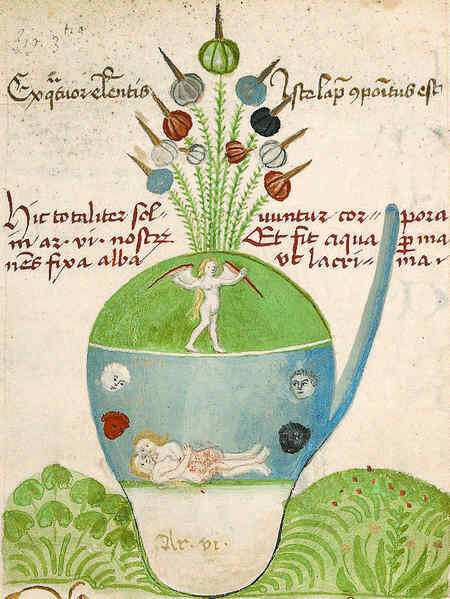 Ex qtuor elentis Iste lap 9poitus est
Hic totaliter sol= uuntur cor= pora
in ar. vi. nostre Et fit aqua p ma
nes fixa alba ut lacri= ma.
Ar. vi.